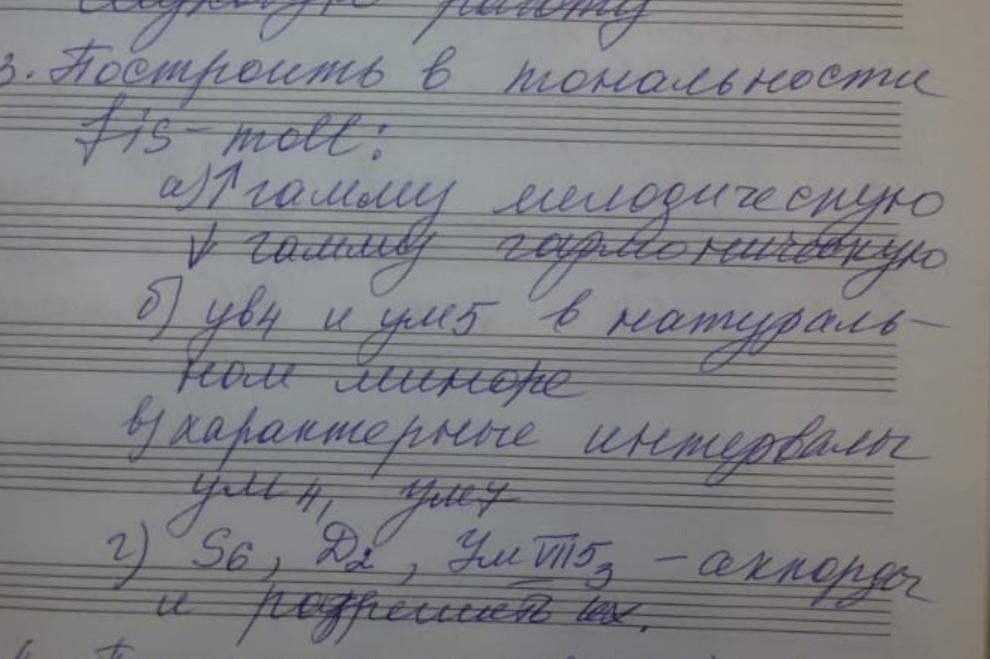 3. Построить в тональности
fis-moll:
а) ↑ гамму мелодическую
↓ гамму гармоническую
б) ув4 и ум5 в натураль-
ном миноре
в) характерные интервалы
ум4, ум7
г) S6, D2, Ум VII53 - аккорды
и разрешить их.